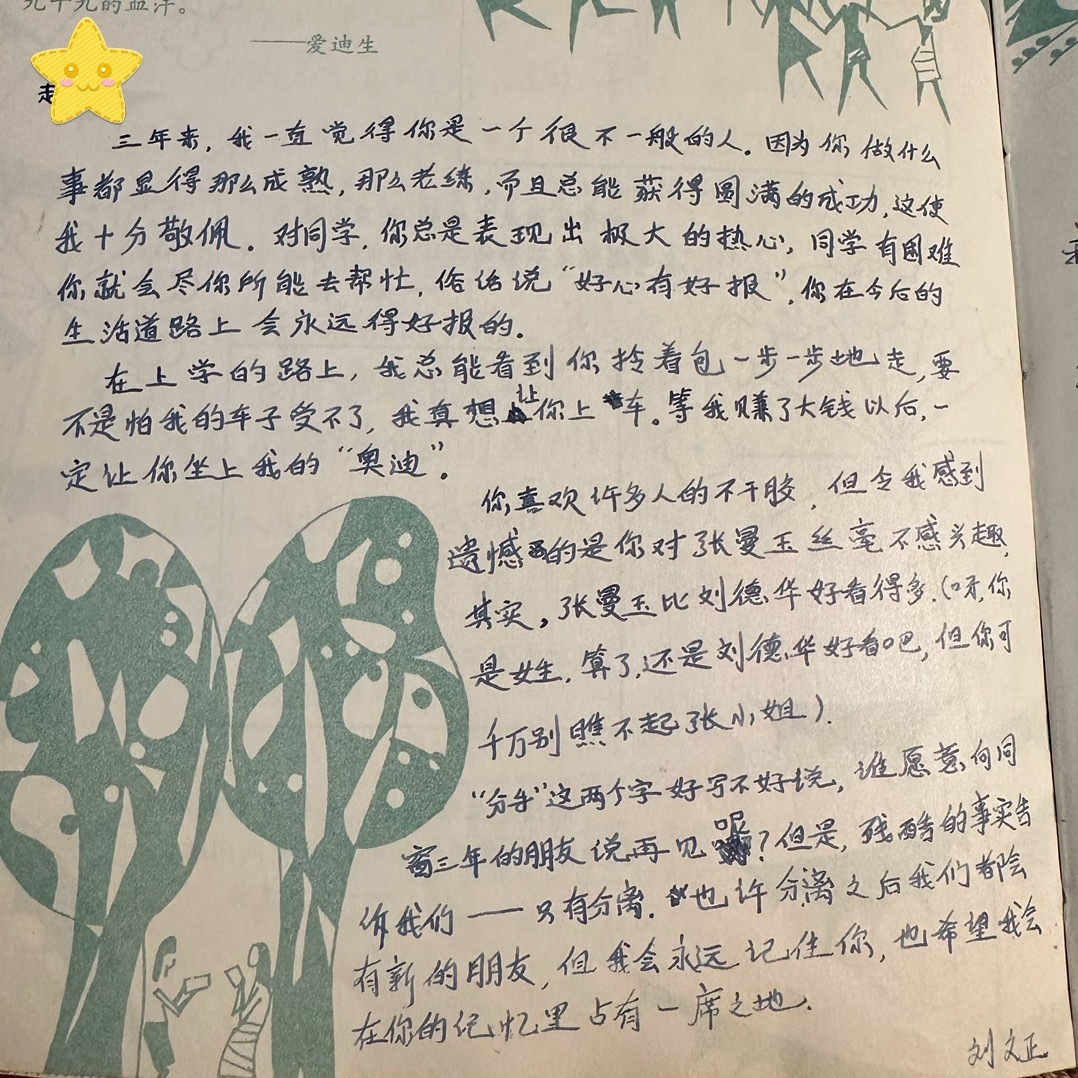 九十九的血汗。
——爱迪生
三年来，我一直觉得你是一个很不一般的人。因为你做什么
事都显得那么成熟，那么老练，而且总能获得圆满的成功，这使
我十分敬佩。对同学，你总是表现出极大的热心，同学有困难
你就会尽你所能去帮忙，俗话说“好心有好报”，你在今后的
生活道路上会永远得好报的。
在上学的路上，我总能看到你拎着包一步一步地走，要
不是怕我的车子受不了，我真想让你上车。等我赚了大钱以后，一
定让你坐上我的“奥迪”。
你喜欢许多人的不干胶，但令我感到
遗憾的是你对张曼玉丝毫不感兴趣，
其实，张曼玉比刘德华好看得多.(呀,你
是女生，算了,还是刘德华好看吧，但你可
千万别瞧不起张小姐）.
“分手”这两个字好写不好说，谁愿意向同
窗三年的朋友说再见呢？但是，残酷的事实告
诉我们——只有分离．也许分离之后我们都会
有新的朋友，但我会永远记住你，也希望我会
在你的记忆里占有一席之地．
刘文正